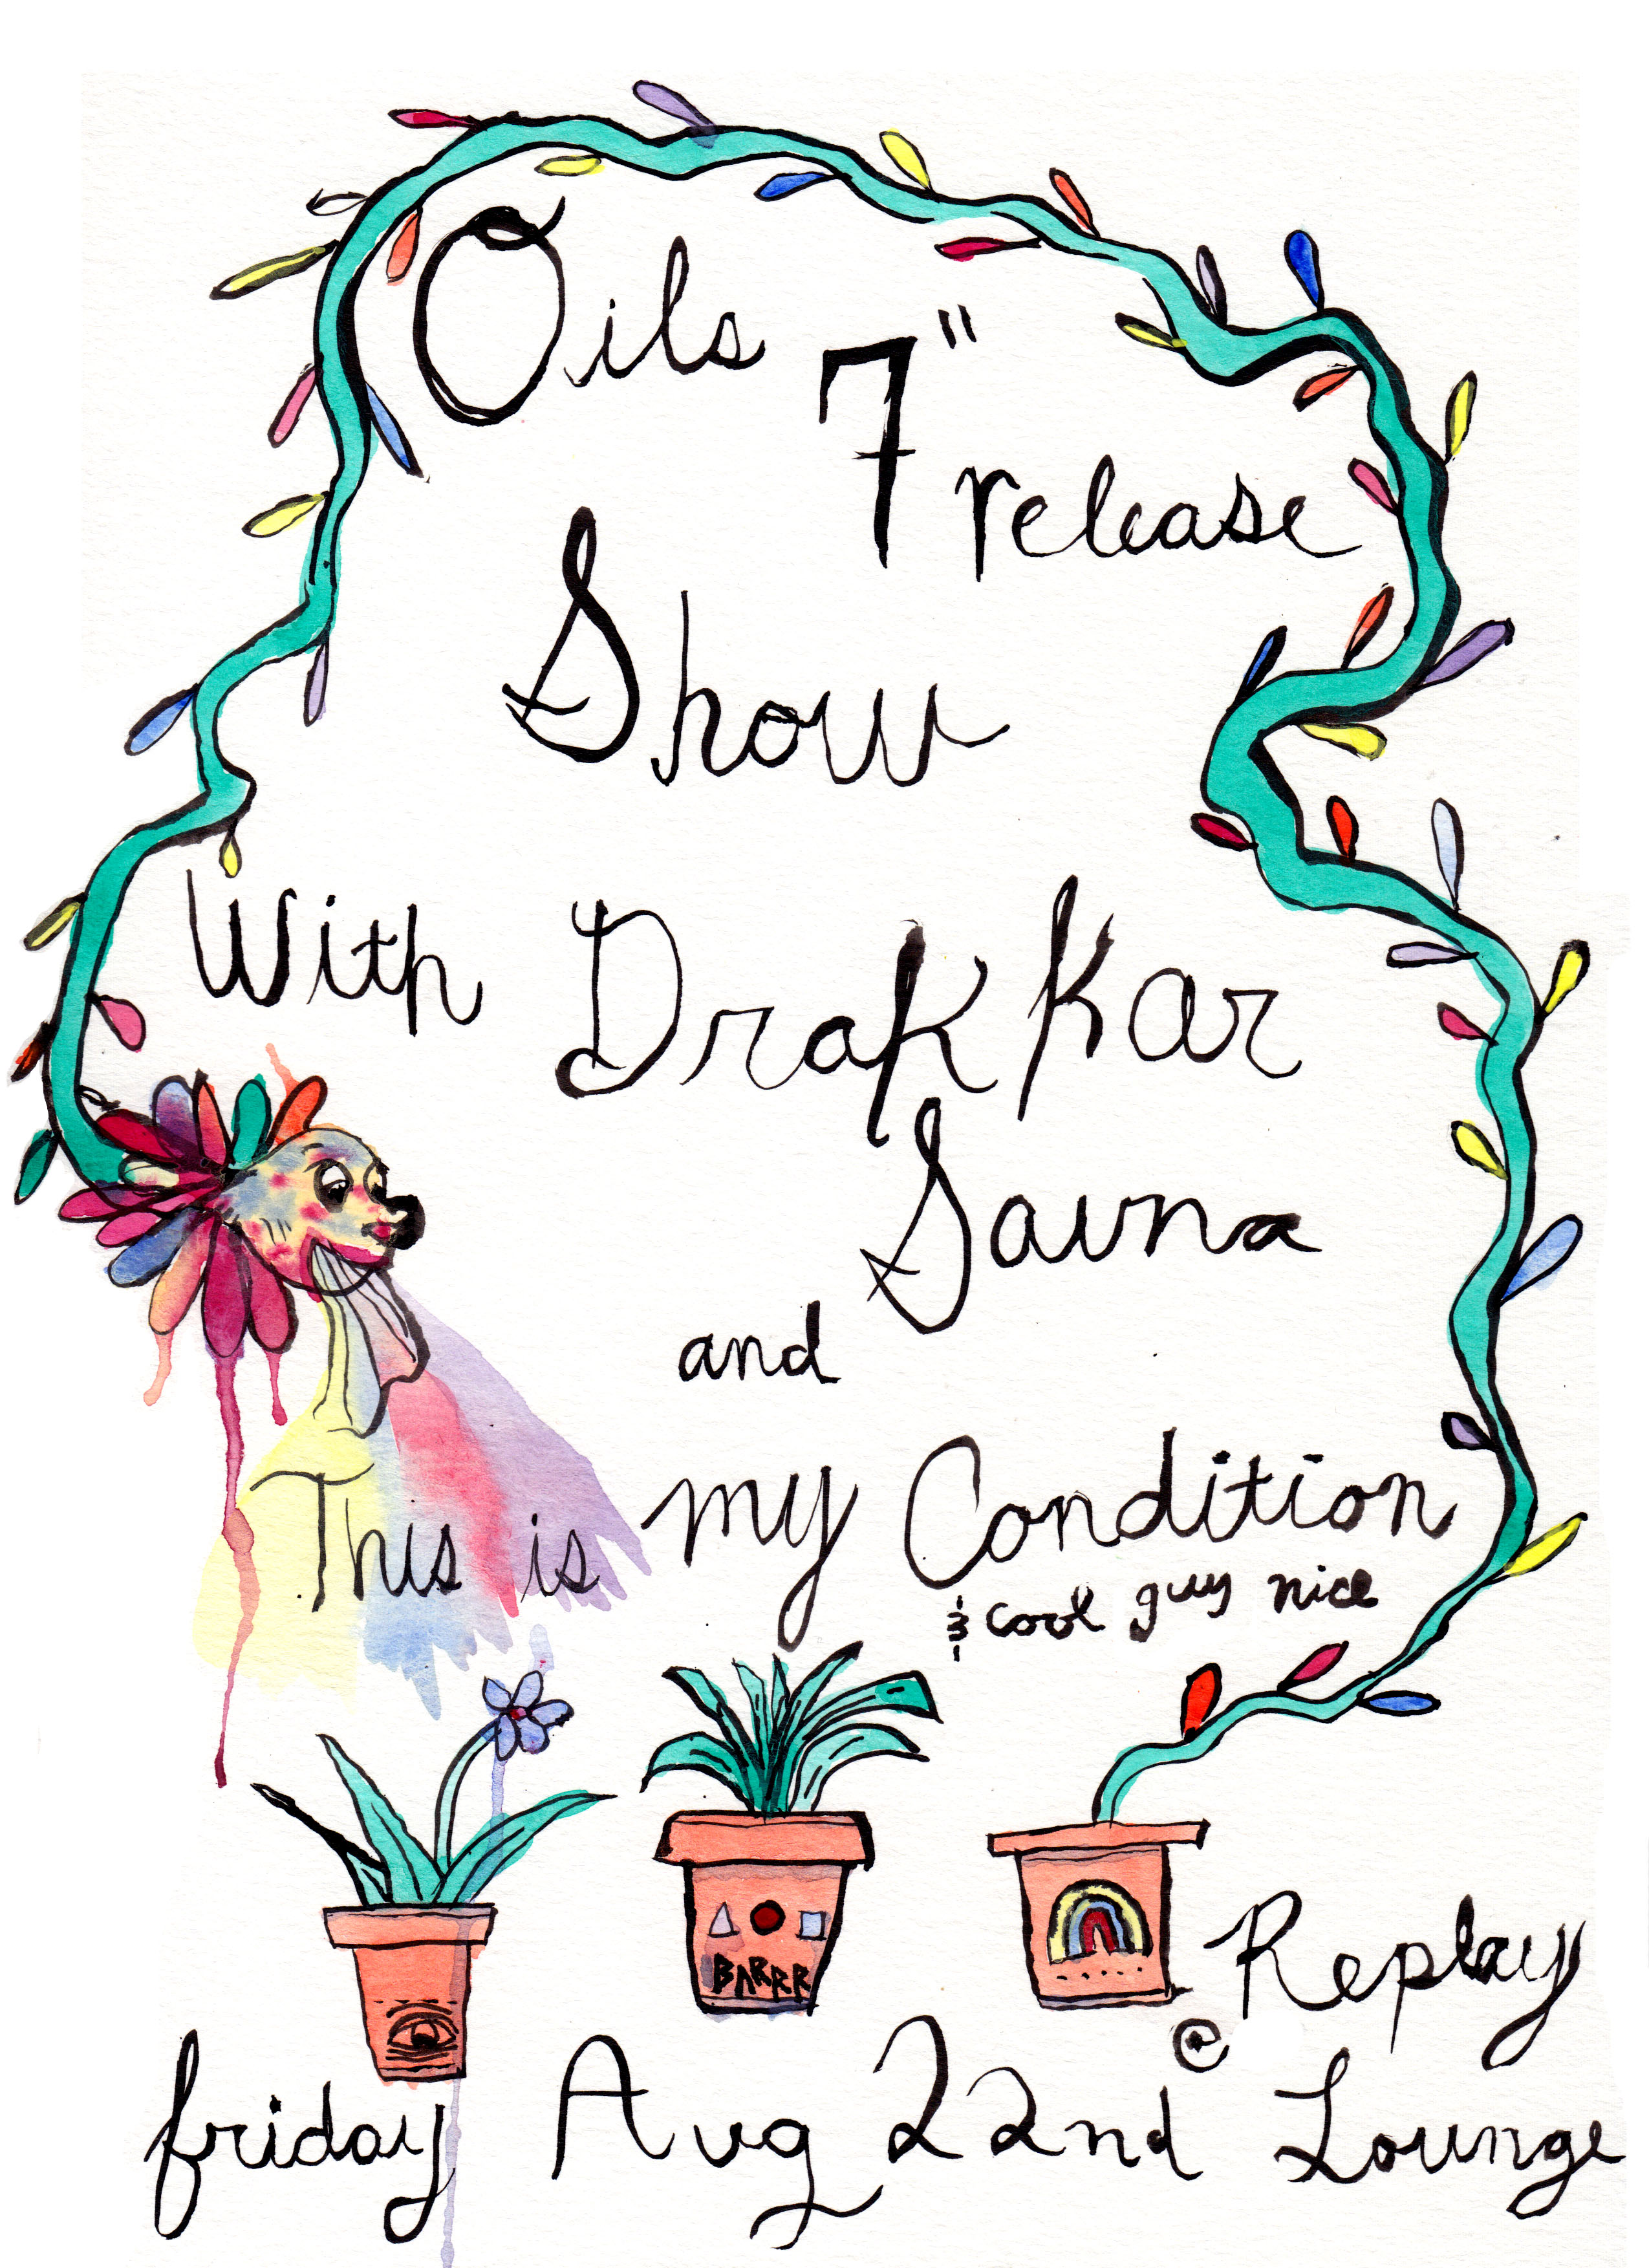 Oils 7"
release
Show
With Drakkar
Sauna
and
This is my Condition
& cool guy nice
BARRR
friday Aug 22nd @ Replay
Lounge